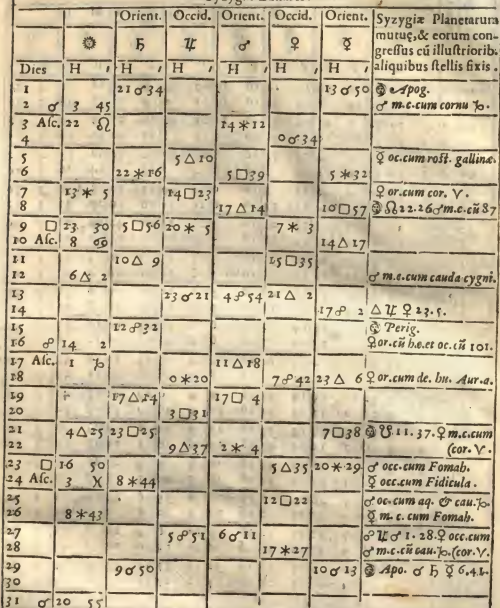 Orient. Occid. Orient. Occid. Orient. Syzygiæ Planetarum
mutuę, & eorum con-
☼ ♄ ♃ ♂ ♀ ☿ gressus cū illustriorib.
Dies H ′ H ′ H ′ H ′ H ′ H ′ aliquibus stellis fixis.
1 21 ☌ 34 13 ☌ 50 Apog.
2 ☌ 3 45 ♂ m.c.cum cornu ♑.
3 Asc. 22 ♌ 14 ✶ 12
4 0 ☌ 34
5 5 △ 10 ☿ oc.cum rost. gallinæ.
6 22 ✶ 16 5 □ 39 5 ✶ 32
7 13 ✶ 5 14 □ 23 ♀ or.cum cor. ♈.
8 17 △ 14 10 □ 57 ☊ 22.26 ♂ m.c.cū 87
9 □ 23 30 5 □ 56 20 ✶ 5 7 ✶ 3
10 Asc. 8 ♋ 14 △ 17
11 10 △ 9 15 □ 35
12 6 △ 2 ♂ m.c.cum cauda cygni.
13 23 ☌ 21 4 ☍ 54 21 △ 2
14 17 ☍ 2 △ ♃ ♀ 23.5.
15 12 ☍ 32 Perig.
16 ☍ 14 2 ♀ or.cū hæ.et oc.cū 101.
17 Asc. 1 ♑ 11 △ 18
18 0 ✶ 20 7 ☍ 42 23 △ 6 ♀ or.cum de. hu. Aur.a.
19 17 △ 14 17 □ 4
20 3 □ 31
21 4 △ 25 23 □ 25 7 □ 38 ☋ 11.37. ♀ m.c.cum
22 9 △ 37 2 ✶ 4 (cor. ♈.
23 □ 16 50 5 △ 35 20 ✶ 29 ♂ occ.cum Fomah.
24 Asc. 3 ♓ 8 ✶ 44 ♀ occ.cum Fidicula.
25 12 □ 22 ♂ oc.cum aq. & cau. ♑.
26 8 ✶ 43 ☿ m.c.cum Fomah.
27 5 ☍ 51 6 ☌ 11 ☍ ♃ ♂ 1.28. ♀ occ.cum
28 17 ✶ 27 ♂ m.c.cū cau. ♑. (cor. ♈.
29 9 ☌ 50 10 ☌ 13 Apo. ☌ ♄ ☿ 6.41.
30
31 ☌ 20 55